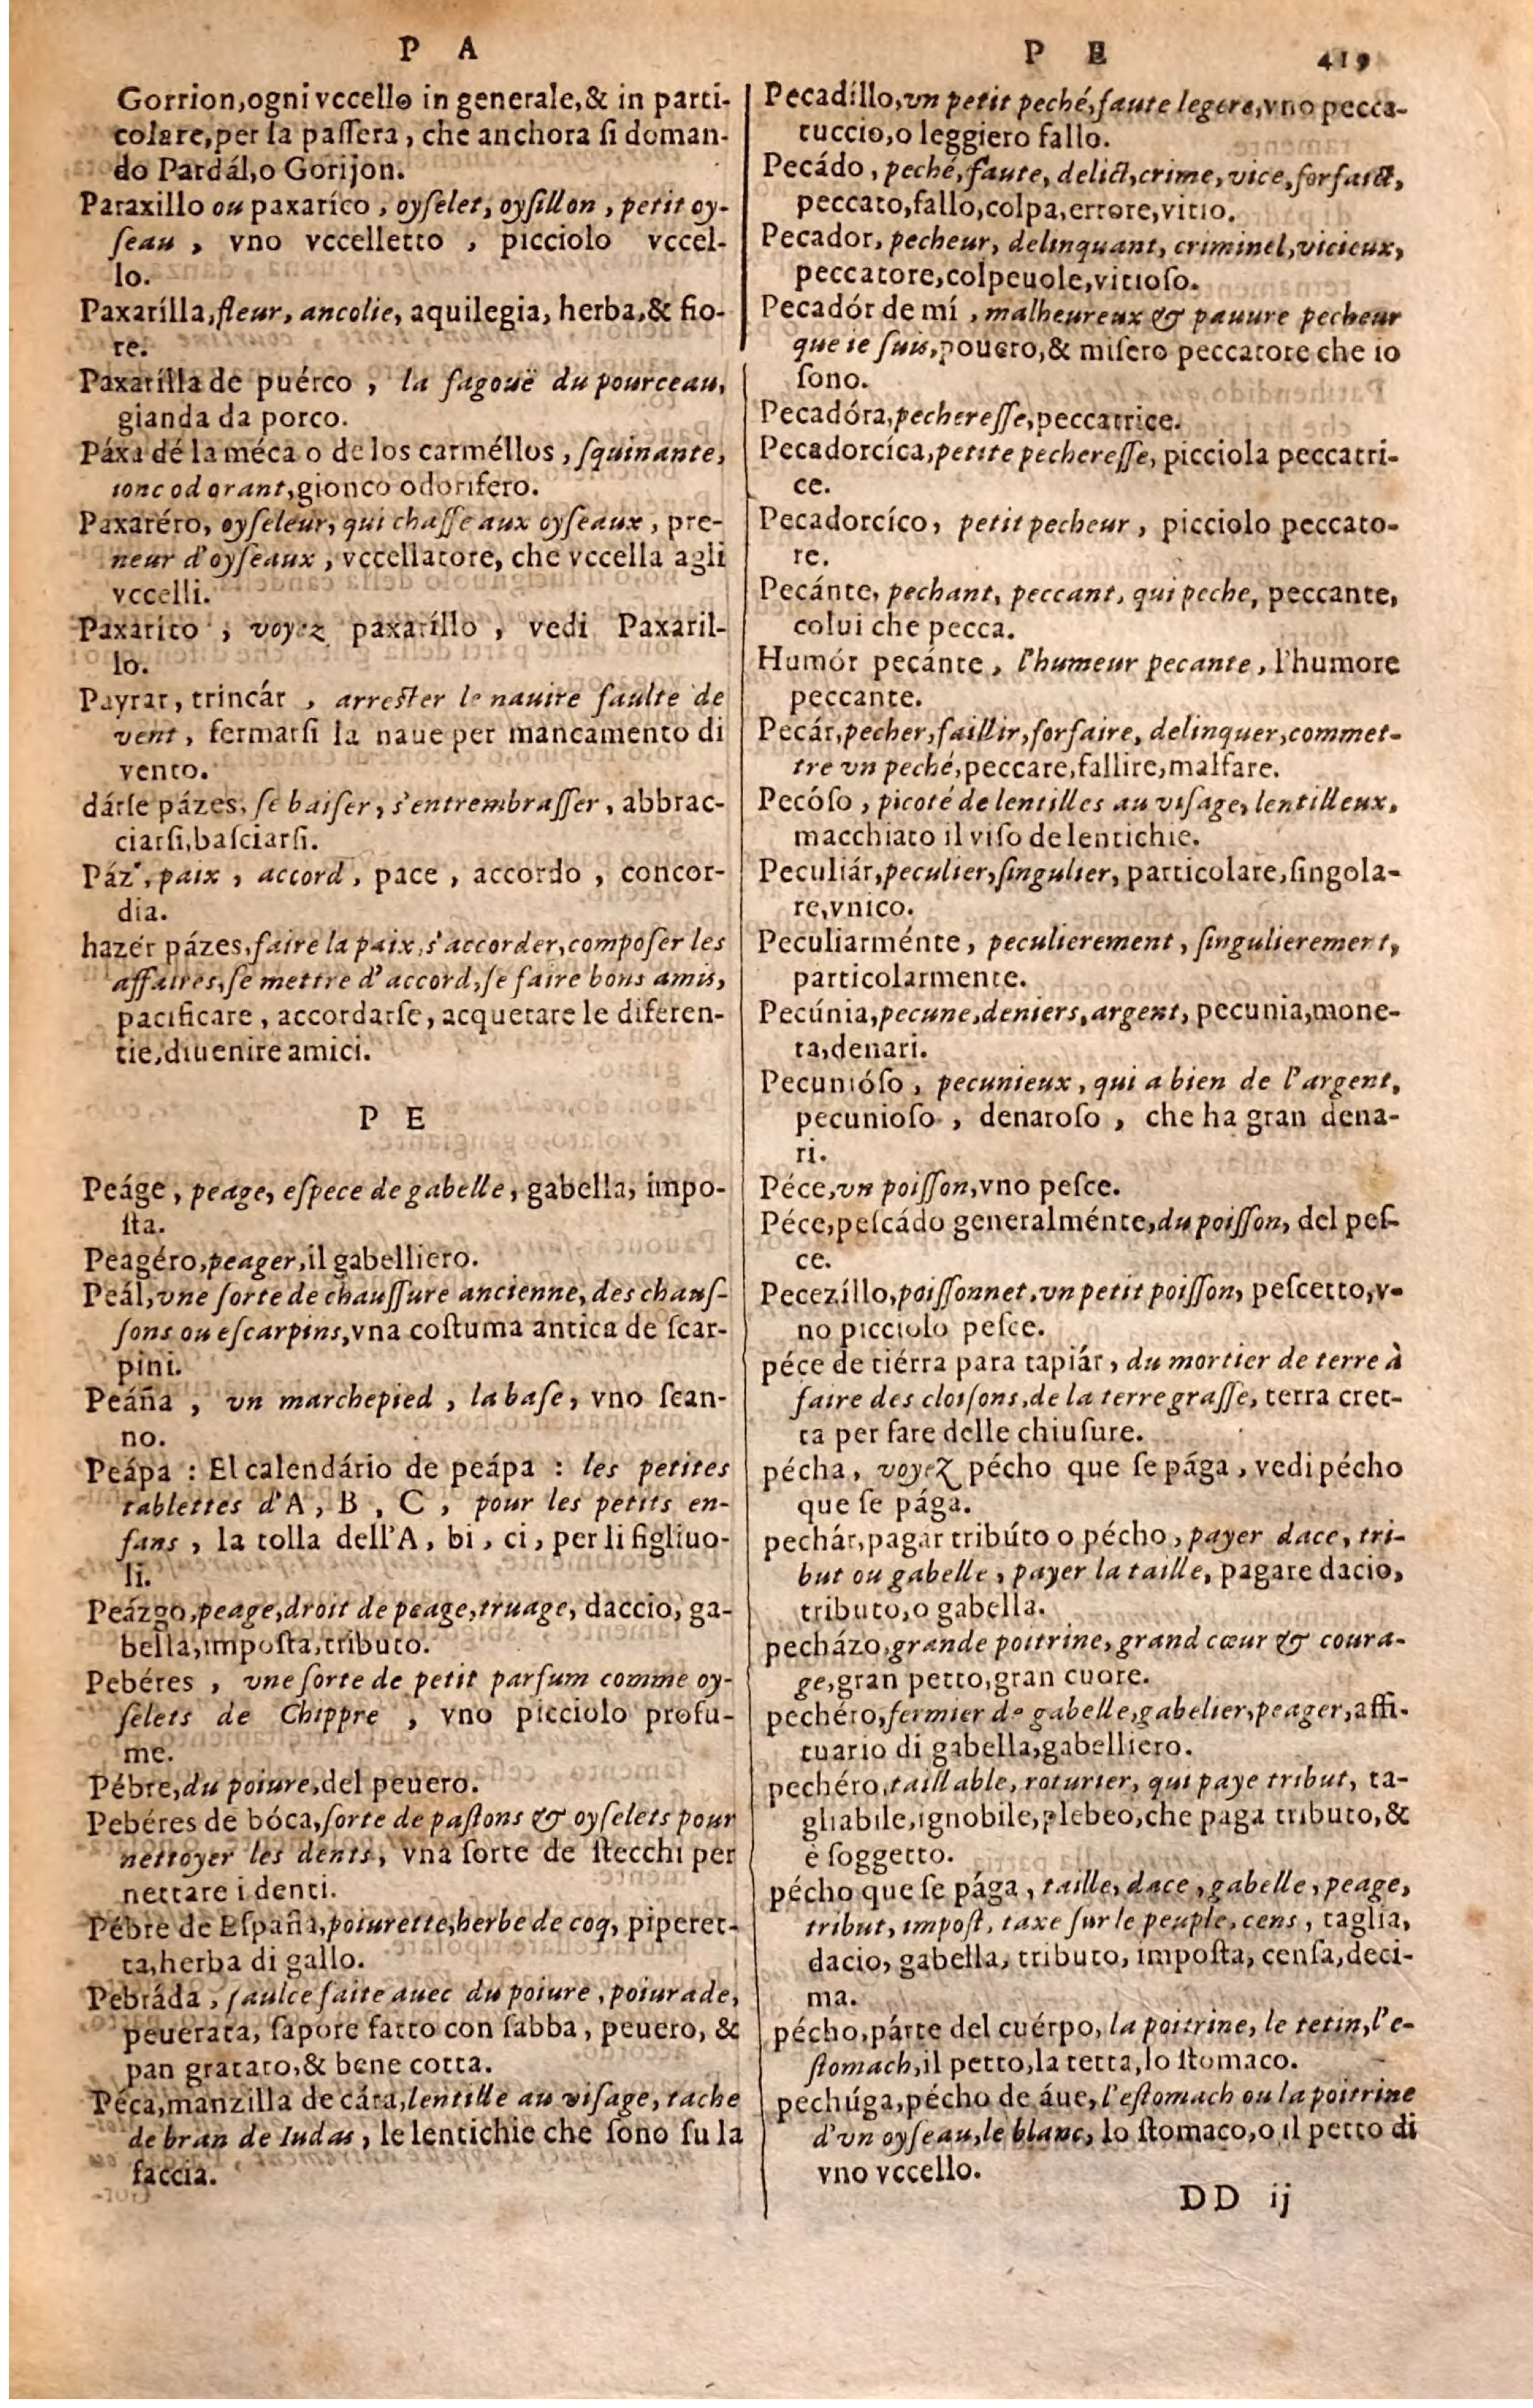 P A
Gorrion,ogni vccello in generale,& in parti-
colare,per la paſſera, che anchora ſi doman-
do Pardál,o Gorijon.
Paraxillo ou paxaríco, oyſelet, oyſillon, petit oy-
ſeau, vno vccelletto, picciolo vccel-
lo.
Paxarílla,fleur, ancolie, aquilegia, herba,& fio-
re.
Paxarílla de puérco, la fagouë du pourceau,
gianda da porco.
Páxa dé la méca o de los carméllos, ſquinante,
ionc odorant,gionco odorifero.
Paxaréro, oyſeleur, qui chaſſe aux oyſeaux, pre-
neur d'oyſeaux, vccellatore, che vccella agli
vccelli.
Paxarito, voyez paxaríllo, vedi Paxaril-
lo.
Payrar, trincár, arreſter le nauire faulte de
vent, fermarſi la naue per mancamento di
vento.
dárſe pázes, ſe baiſer, s'entrembraſſer, abbrac-
ciarſi,baſciarſi.
Páz, paix, accord, pace, accordo, concor-
dia.
hazér pázes,faire la paix,s'accorder,compoſer les
affaires,ſe mettre d'accord,ſe faire bons amis,
pacificare, accordarſe, acquetare le diferen-
tie,diuenire amici.
P E
Peáge, peage, eſpece de gabelle, gabella, impo-
ſta.
Peagéro,peager,il gabelliero.
Peál,vne ſorte de chauſſure ancienne,des chauſ-
ſons ou eſcarpins,vna coſtuma antica de ſcar-
pini.
Peáña, vn marchepied, la baſe, vno ſcan-
no.
Peápa : El calendário de peápa : les petites
tablettes d'A, B, C, pour les petits en-
fans, la tolla dell'A, bi, ci, per li figliuo-
li.
Peázgo,peage,droit de peage,truage, daccio, ga-
bella,impoſta,tributo.
Pebéres, vne ſorte de petit parfum comme oy-
ſelets de Chippre, vno picciolo profu-
me.
Pébre,du poiure,del peuero.
Pebéres de bóca,ſorte de paſtons & oyſelets pour
nettoyer les dents, vna ſorte de ſtecchi per
nettare i denti.
Pébre de Eſpaña,poiurette,herbe de coq, piperet-
ta,herba di gallo.
Pebráda, ſaulce faite auec du poiure, poiurade,
peuerata, ſapore fatto con ſabba, peuero, &
pan gratato,& bene cotta.
Péca,manzilla de cára,lentille au viſage, tache
de bran de Iudas, le lentichie che ſono ſu la
faccia.
P E 419
Pecadíllo,vn petit peché,faute legere,vno pecca-
tuccio,o leggiero fallo.
Pecádo, peché,faute, delict,crime, vice, forfaict,
peccato,fallo,colpa,errore,vitio.
Pecador, pecheur, delinquant, criminel,vicieux,
peccatore,colpeuole,vitioſo.
Pecadór de mí, malheureux & pauure pecheur
que ie ſuis,pouero,& miſero peccatore che io
ſono.
Pecadóra,pechereſſe,peccatrice.
Pecadorcíca,petite pechereſſe, picciola peccatri-
ce.
Pecadorcíco, petit pecheur, picciolo peccato-
re.
Pecánte, pechant, peccant, qui peche, peccante,
colui che pecca.
Humór pecánte, l'humeur pecante, l'humore
peccante.
Pecár,pecher,faillir,forfaire, delinquer,commet-
tre vn peché,peccare,fallire,malfare.
Pecóſo, picoté de lentilles au viſage, lentilleux,
macchiato il viſo de lentichie.
Peculiár,peculier,ſingulier, particolare,ſingola-
re,vnico.
Peculiarménte, peculierement, ſingulierement,
particolarmente.
Pecúnia,pecune,deniers,argent, pecunia,mone-
ta,denari.
Pecunióſo, pecunieux, qui a bien de l'argent,
pecunioſo, denaroſo, che ha gran dena-
ri.
Péce,vn poiſſon,vno peſce.
Péce,peſcádo generalménte,du poiſſon, del peſ-
ce.
Pecezíllo,poiſſonnet,vn petit poiſſon, peſcetto,v-
no picciolo peſce.
péce de tiérra para tapiár, du mortier de terre à
faire des cloiſons,de la terre graſſe, terra cret-
ta per fare delle chiuſure.
pécha, voyez pécho que ſe pága, vedi pécho
que ſe pága.
pechár,pagar tribúto o pécho, payer dace, tri-
but ou gabelle, payer la taille, pagare dacio,
tributo,o gabella.
pecházo,grande poitrine,grand cœur & coura-
ge,gran petto,gran cuore.
pechéro,fermier de gabelle,gabelier,peager,affi-
tuario di gabella,gabelliero.
pechéro,taillable, roturier, qui paye tribut, ta-
gliabile,ignobile,plebeo,che paga tributo,&
è ſoggetto.
pécho que ſe pága, taille, dace, gabelle, peage,
tribut, impoſt, taxe ſur le peuple, cens, taglia,
dacio, gabella, tributo, impoſta, cenſa,deci-
ma.
pécho,párte del cuérpo, la poitrine, le tetin,l'e-
ſtomach,il petto,la tetta,lo ſtomaco.
pechúga,pécho de áue, l'eſtomach ou la poitrine
d'vn oyſeau,le blanc, lo ſtomaco,o il petto di
vno vccello.
DD ij